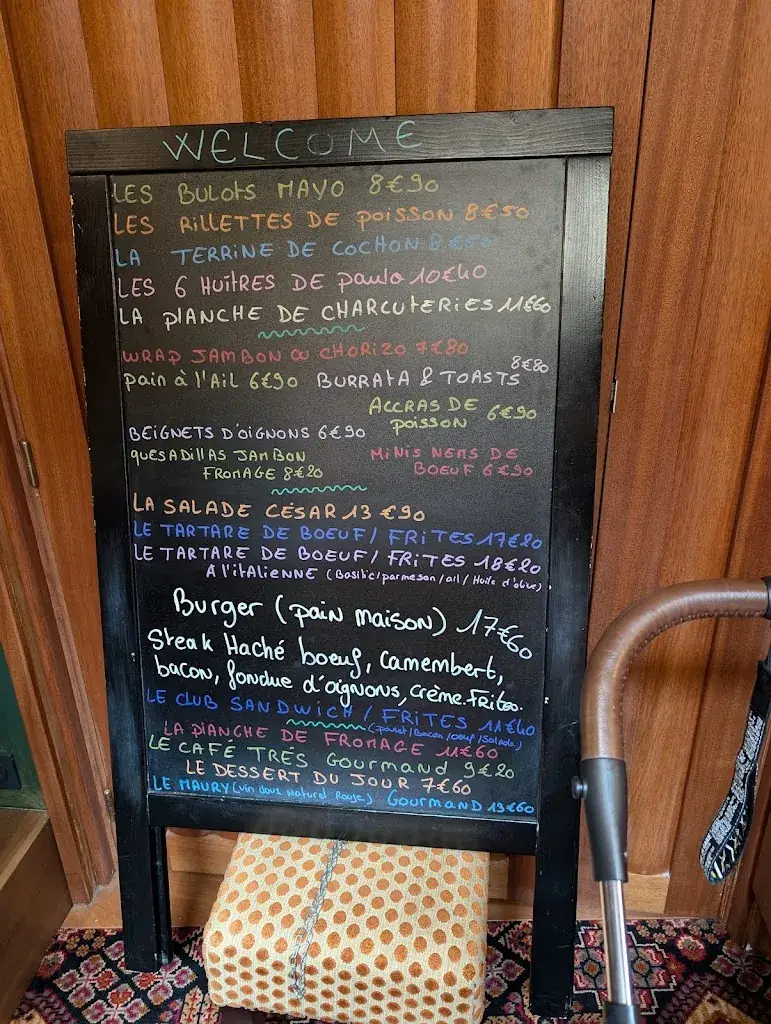 WELCOME
LES BULOTS MAYO 8€90
LES RILLETTES DE POISSON 8€50
LA TERRINE DE COCHON 8€50
LES 6 HUITRES DE PAULO 10€40
LA PLANCHE DE CHARCUTERIES 11€60
WRAP JAMBON OU CHORIZO 7€80
Pain à l'Ail 6€90 BURRATA & TOASTS 8€80
ACCRAS DE POISSON 6€90
BEIGNETS D'OIGNONS 6€90
QUESADILLAS JAMBON
FROMAGE 8€20
MINIS NEMS DE
BOEUF 6€90
LA SALADE CÉSAR 13€90
LE TARTARE DE BOEUF / FRITES 17€20
LE TARTARE DE BOEUF / FRITES 18€20
A l'itALIENNE (Basilic/parmesan/ail/Huile d'olive)
Burger (pain maison) 17€60
Steak Haché boeuf, Camembert,
bacon, fondue d'oignons, crème. Frites.
LE CLUB SANDWICH / FRITES 11€40
(poulet/Bacon/oeuf/Salade)
LA PLANCHE DE FROMAGE 11€60
LE CAFÉ TRÉS Gourmand 9€20
LE DESSERT DU JOUR 7€60
LE MAURY (vin doux Naturel Rouge) Gourmand 13€60